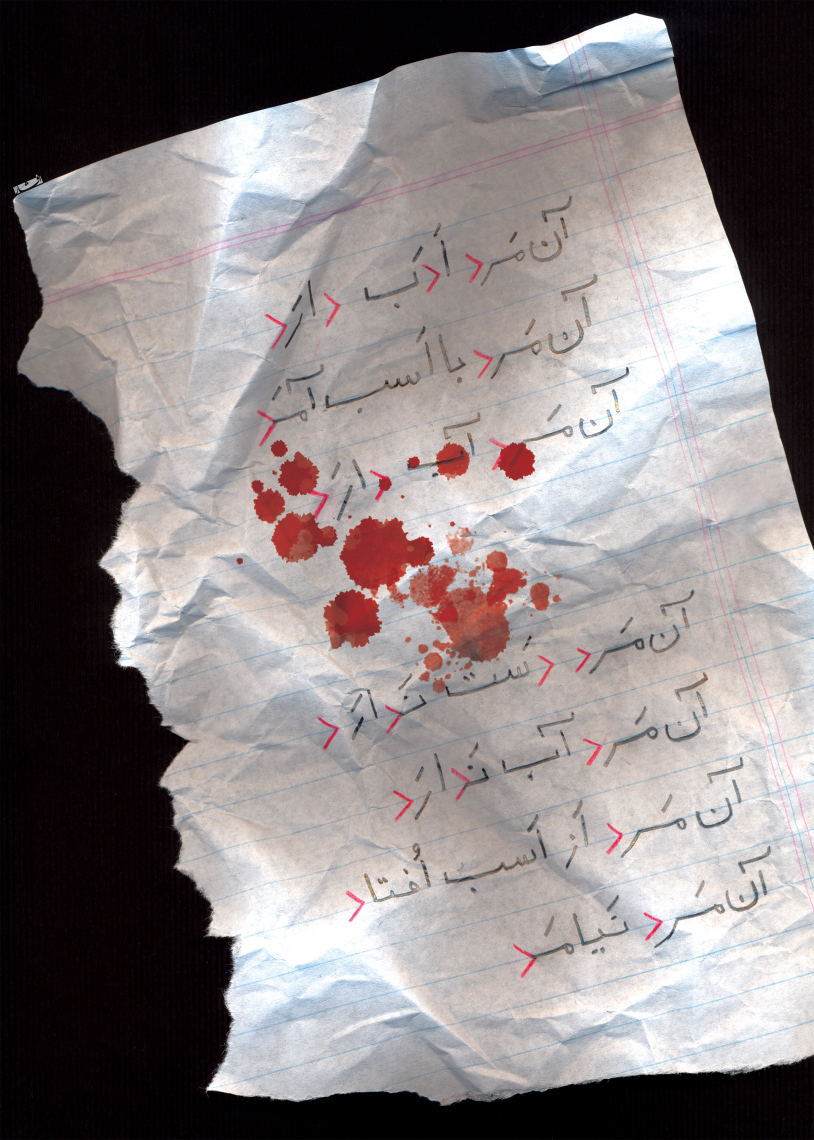 آن مَرد اَدَب دارَد
آن مَرد با اَسب آمَد
آن مَرد آب دارَد
آن مَرد دَست نَدارَد
آن مَرد آب نَدارَد
آن مَرد اَز اَسب اُفتاد
آن مَرد نَیامَد